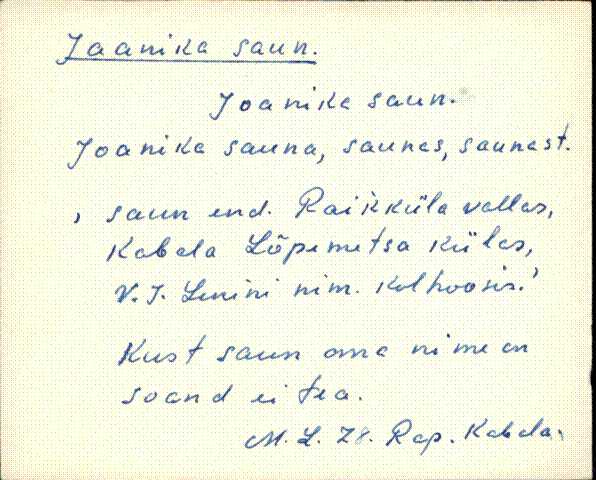 Jaanika saun.
Joanika saun.
Joanika sauna, saunas, saunast.
, saun end. Raikküla vallas,
Kabala Lõpemetsa külas,
V. I. Lenini nim. kolhoosis.'
Kust saun oma nime on
soand ei tea.
M. L. 78. Rap. Kabala.